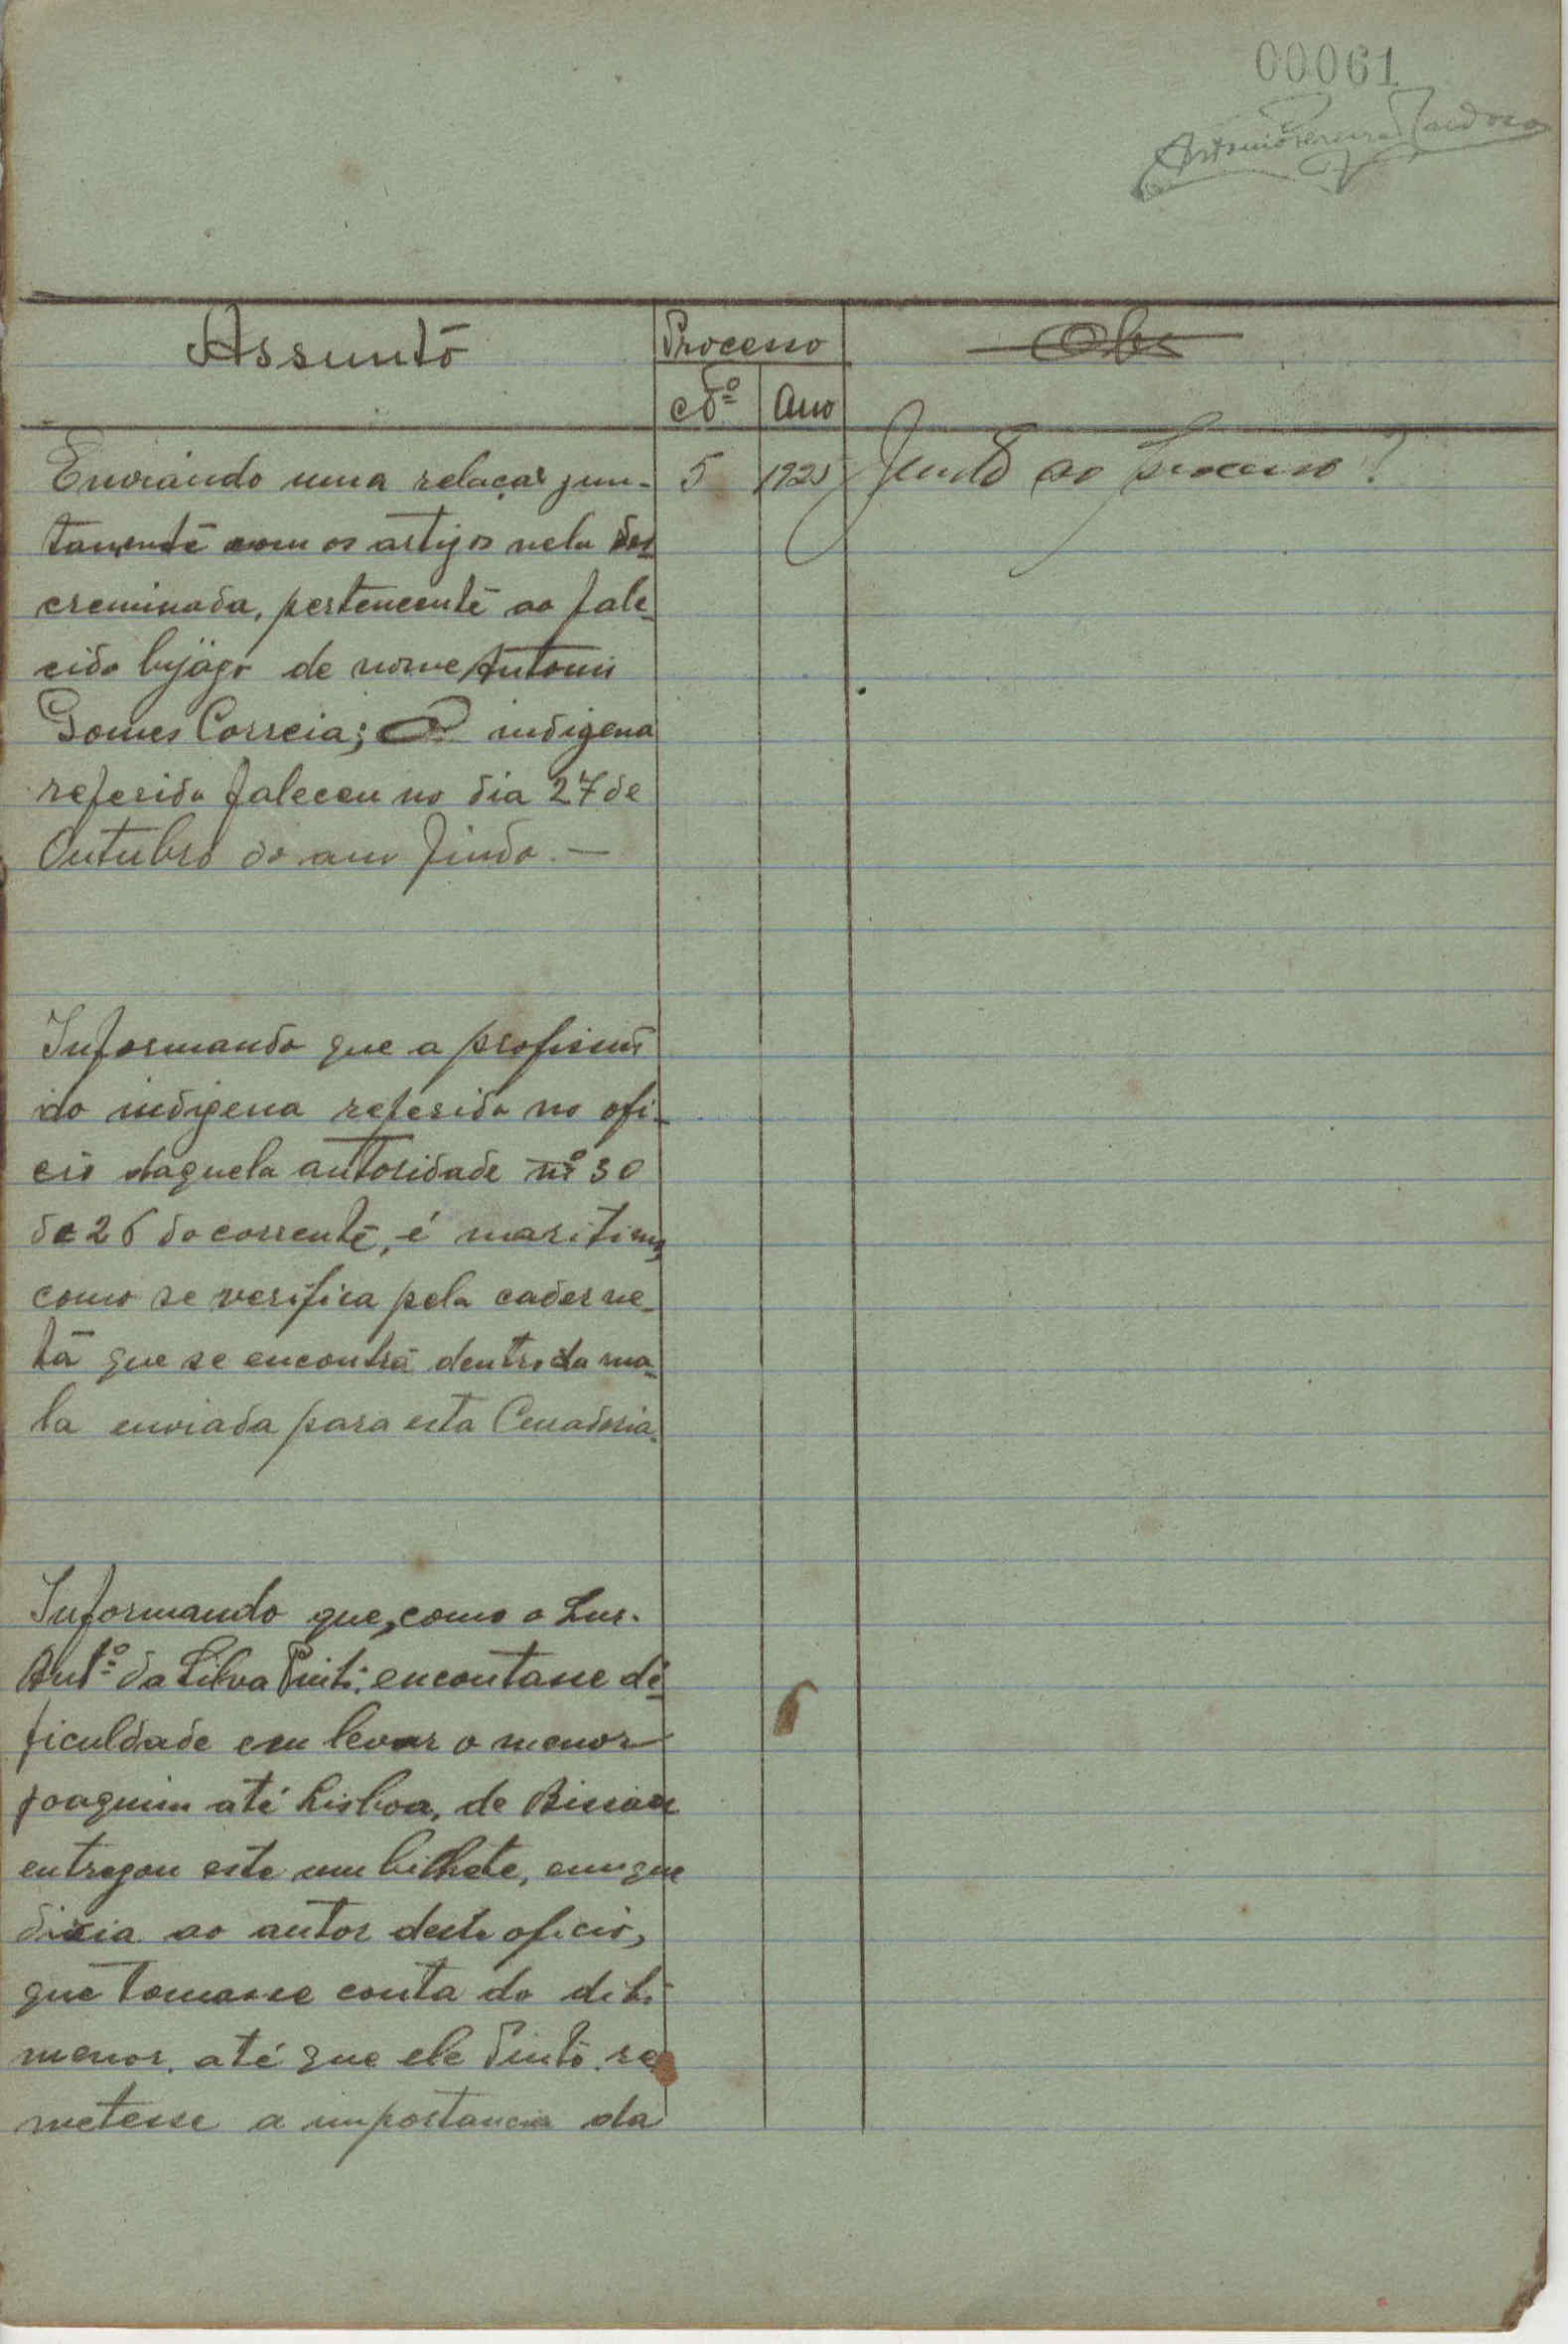 00061
Antonio Pereira Cardoso
Assunto
Processo
Obs
Nº
Ano
Enviando uma relaçao jun-
5
1925
Junto ao processo
tamente com os artigos nela des-
creminada, pertencente ao fale-
cido bijagó de nome Antonio
Gomes Correia; O indigena
referido faleceu no dia 27 de
Outubro do ano findo. —
Informando que a profissão
do indigena referido no ofi-
cio daquela autoridade nº 30
de 26 do corrente, é maritimo,
como se verifica pela caderne-
ta que se encontra dentro da ma-
la enviada para esta Curadoria.
Informando que, como o Snr.
Antº da Silva Pinto encontasse di-
ficuldade em levar o menor
Joaquim até Lisboa, de Bissau
entregou este um bilhete, em que
dizia ao autor deste oficio,
que tomasse conta do dito
menor, até que ele Pinto re
metesse a importancia da